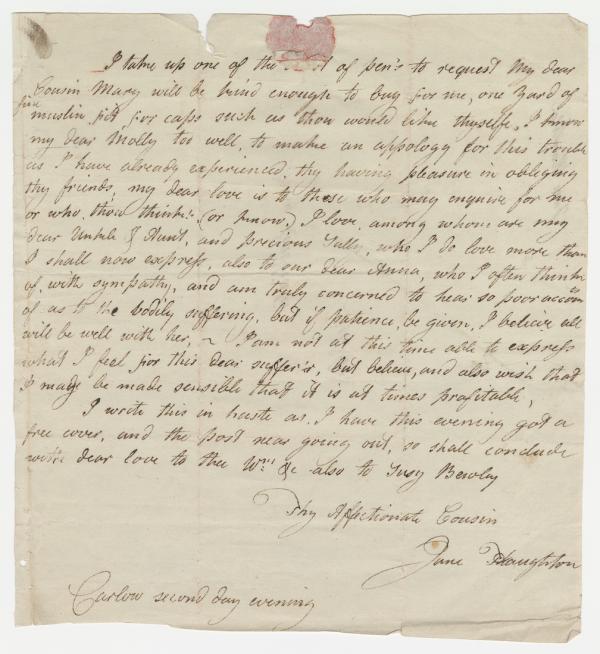 I take up one of the of pen's to request My dear
Cousin Mary will be kind enough to buy for me, one Yard of
fine
muslin fit for caps such as thou would like thyself, I know
my dear Molly too well, to make an appology for this trouble
as I have already experienced, thy having pleasure in obliging
thy friends, my dear love is to those who may enquire for me
or who, thou thinks (or know) I love, among whom are my
dear Unkle & Aunt, and precious Sally, who I do love more than
I shall now express, also to our dear Anna, who I often think
of, with sympathy, and am truly concerned to hear so poor accounts
of as to the bodily suffering, but if patience, be given, I believe all
will be well with her, ~ I am not at this time able to express
what I feel for this dear suffer'r, but believe, and also wish that
I may be made sensible that it is at times profitable,
I write this in haste as I have this evening got a
free cover, and the post near going out, so shall conclude
with dear love to thee Wm &c also to Susy Bewley
Thy Affectionate Cousin
Jane Haughton
Carlow second day evening